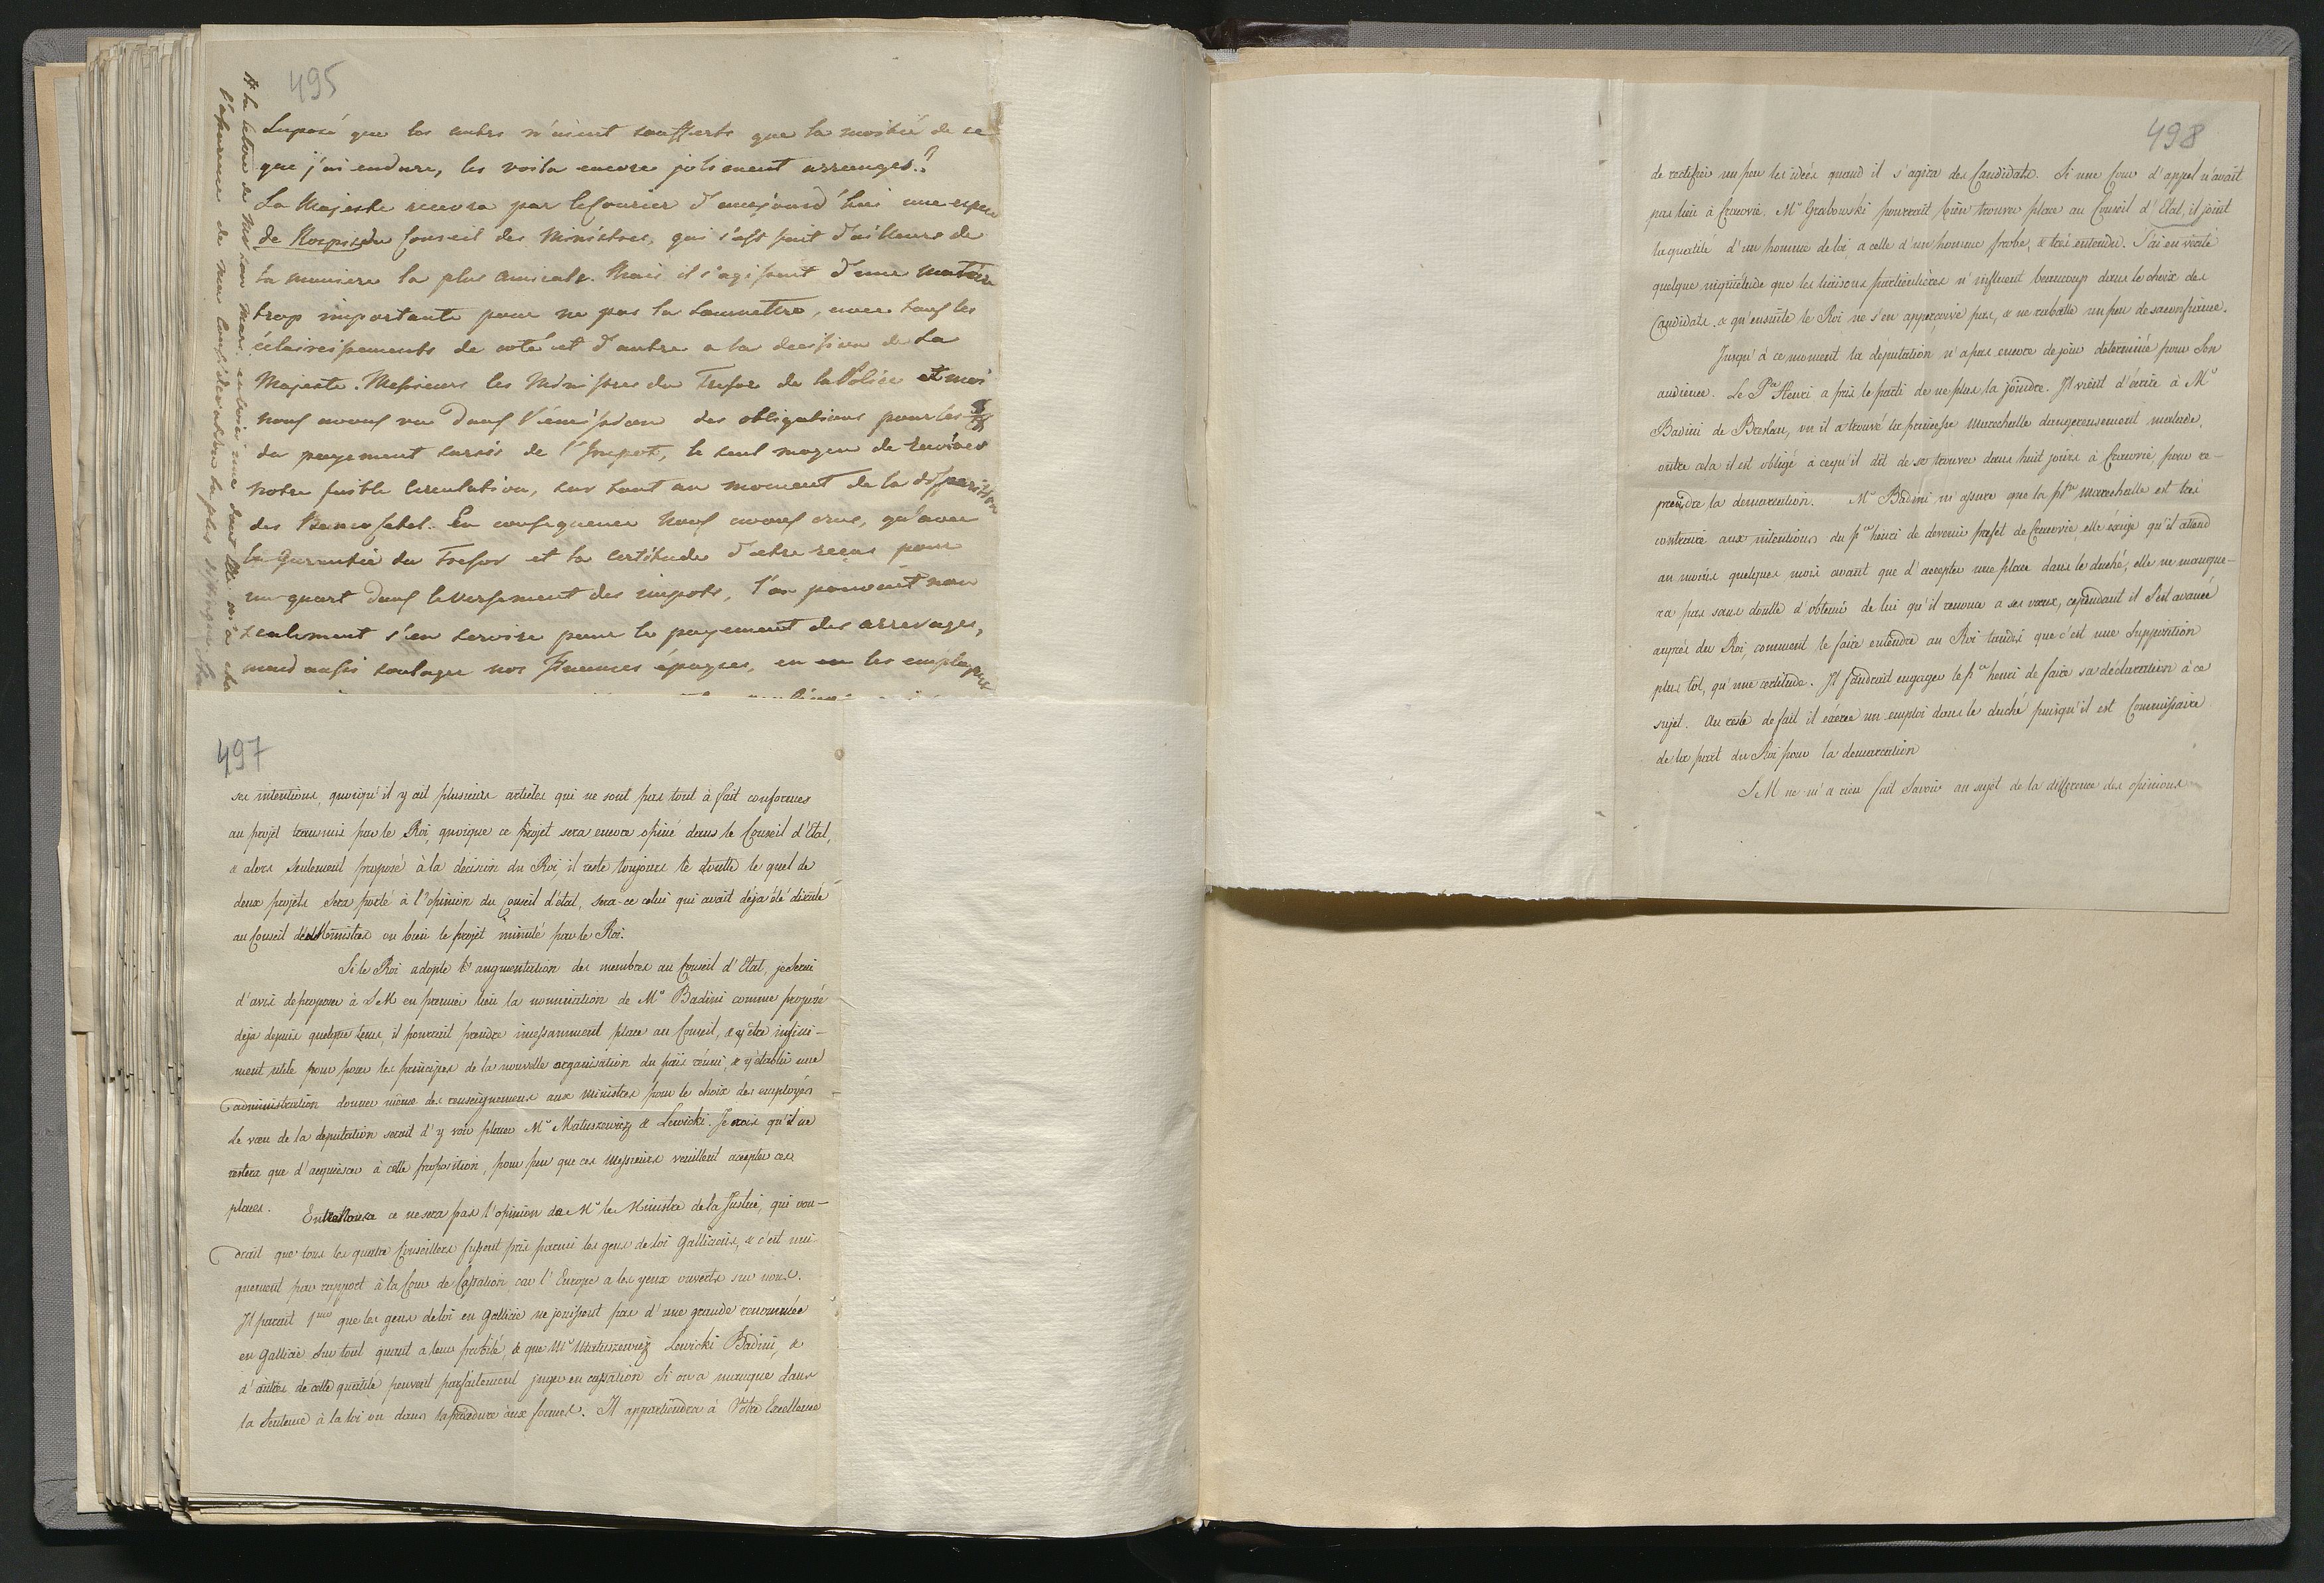 495
Suposé que les autres n'aient soufferts que la moitié de ce
que j'ai endure, les voila encore joliment arranges!
Sa Majesté recevra par le Courier d'aujourd'hui une espece
de Rospis du Conseil des Ministres, qui s'est fait d'ailleurs de
la maniere la plus amicale. Mais il s'agissait d'une matiere
trop importante pour ne pas la soumettre, avec tous les
éclaircissements de coté et d'autre a la decission de Sa
Majeste. Messieurs les Ministres du Tresor de la Police et moi
nous avons vu dans l'émission des obligations pour les
du payement sursis de l'Impot, le seul moyen de
notre faible circulation, sur tout au moment de la disparition
des Bancozetel. En consequence nous avons crus, qu'avec
la garantie du Tresor et la certitude d'etre recus pour
un quart dans le versement des impots, l'on pouvait non
seulement s'en servire pour le payement des arrerages,
mais aussi soulager nos finances épuisees, en les employant
de ma consideration la plus distinguée
497
ses intentions, quoiqu'il y ait plusieurs articles qui ne sont pas tout à fait conformes
au projet transmis par le Roi, quoique ce projet sera encore opiné dans le Conseil d'Etat,
& alors seulement proposé à la decision du Roi, il reste toujours le doutte le quel de
deux projets sera porté à l'opinion du Conseil d'état, sera-ce celui qui avait déja été discuté
au Conseil des Ministres ou bien le projet minuté par le Roi.
Si le Roi adopte l'augmentation des membres au Conseil d'Etat, je serai
d'avis de proposer à S M en premier lieu la nomination de Mr Badini comme proposé
deja depuis quelque tems, il pourrait prendre incessamment place au Conseil, & y être infini-
ment utile pour poser les principes de la nouvelle organisation du païs réuni, & y établir une
administration donner même des renseignemens aux Ministres pour le choix des employés
Le vœu de la deputation serait d'y voir placer Mr Matuszewicz & Lewicki. Je crois qu'il ne
restera que d'acquiescer à cette proposition, pour peu que ces Messieurs veuillent accepter ces
places. ce ne sera pas l'opinion de Mr le Ministre de la Justice, qui vou-
drait que tous les quatre Conseillers fussent pris parmi les gens de loi Galliciens, & c'est uni-
quement par rapport à la Cour de Cassation car l'Europe a les yeux ouverts sur nous.
Il parait 1mo que les gens de loi en Gallicie ne jouissent pas d'une grande renommée
en Gallicie sur tout quant a leur probité, & que Mr Matuszewicz Lewicki Badini, &
d'autres de cette qualité peuvent parfaitement juger en cassation si on a manque dans
la sentence à la loi ou dans la procedure aux formes. Il appartiendra à Votre Excellence
498
de rectifier un peu les idées quand il s'agira des Candidats. Si une Cour d'appel n'avait
pas lieu à Cracovie. Mr Grabowski pourrait bien trouver place au Conseil d'Etat, il joint
la qualité d'un homme de loi, a celle d'un homme probe, & tres entendu. J'ai en vérité
quelque inquiétude que les liaisons particulières n'influent beaucoup dans le choix des
Candidats, & qu'ensuite le Roi ne s'en apperçoive pas, & ne rabatte un peu de sa confiance.
Jusqu'à ce moment la députation n'a pas encore de jour determiné pour son
audience. Le Pce Henri a pris le parti de ne plus la joindre. Il vient d'écrire à Mr
Badini de Breslau, ou il a trouvé la princesse Marechalle dangereusement malade,
outre cela il est obligé à cequ'il dit de se trouver dans huit jours à Cracovie, pour re-
prendre la demarcation. Mr Badini m'assure que la psse Marechalle est tres
contraire aux intentions du pce henri de devenir prefet de Cracovie, elle éxige qu'il attend
au moins quelques mois avant que d'accepter une place dans le duché; elle ne manque-
ra pas sans doutte d'obtenir de lui qu'il renonce a ses vœux, cependant il s'est avancé
auprès du Roi, comment le faire entendre au Roi tandis que c'est une supposition
plus tôt, qu'une certitude. Il faudrait engager le pce henri de faire sa déclaration à ce
sujet. Au reste de fait il éxerce un emploi dans le duché puisqu'il est Commissaire
de la part du Roi pour la demarcation
S M ne m'a rien fait savoir au sujet de la difference des opinions